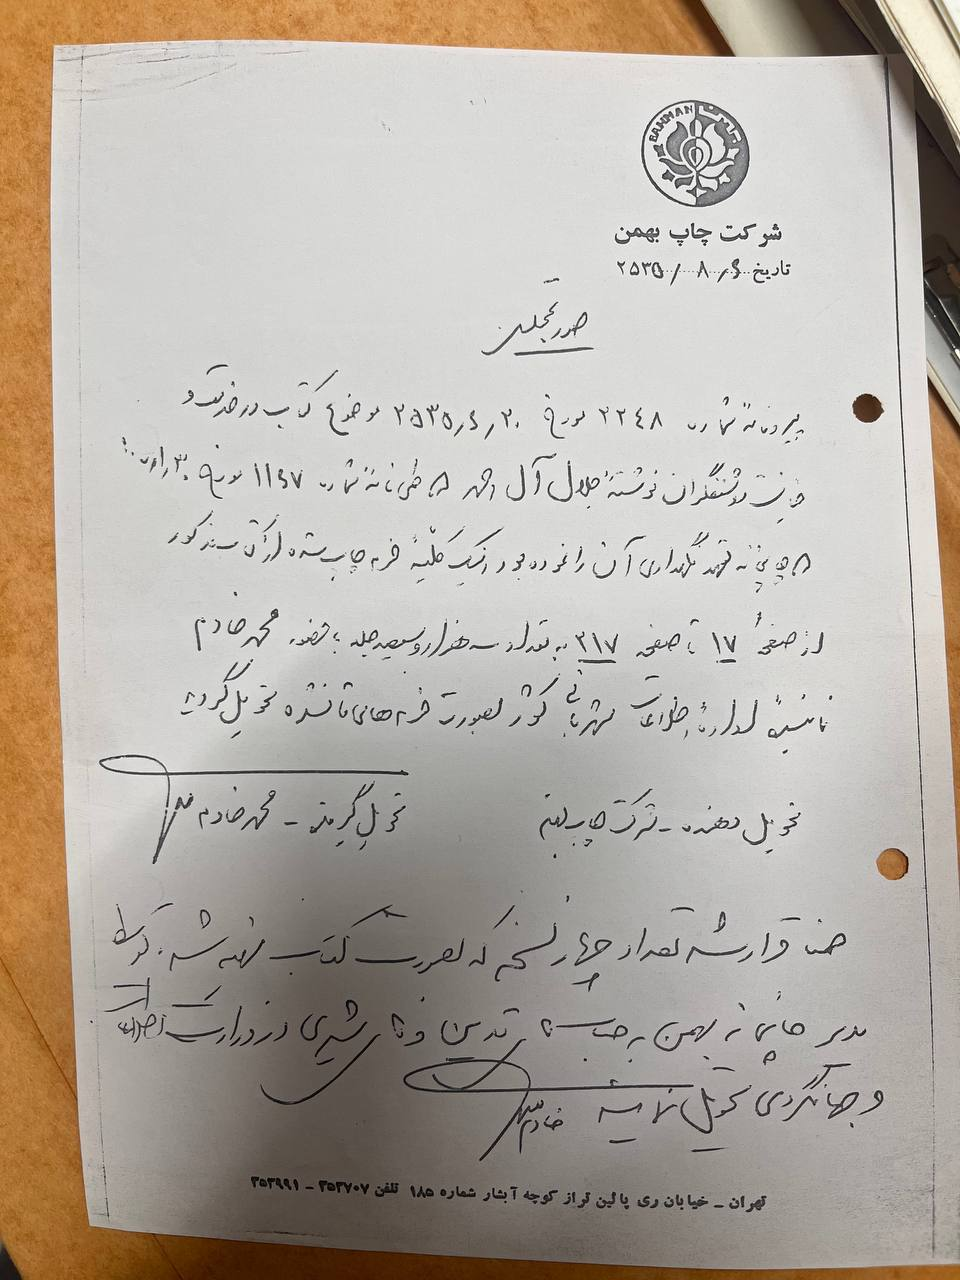 BAHMAN بهمن
شرکت چاپ بهمن
تاریخ ۲۵۳۵/۸/۶
صورتمجلس
پیرو نامه شماره ۲۲۴۸ مورخ ۲۵۳۵/۶/۳۰ موضوع کتاب در خدمت و
خیانت روشنفکران نوشته جلال آل احمد که طی نامه شماره ۱۱۴۷ مورخ
که چاپخانه تعهد نگهداری آن را نموده بود اینک کلیهٔ فرم چاپ شده از کتاب مذکور
از صفحهٔ ۱۷ تا صفحه ۳۱۷ به تعداد سه هزار و سیصد جلد با حضور محمد خادم
نمایندهٔ ادارهٔ اطلاعات شهربانی کشور بصورت فرم‌های تا نشده تحویل گردید
تحویل دهنده – شرکت چاپ بهمن
تحویل گیرنده – محمد خادم
ضمنا قرار شد تعداد چهار نسخه که بصورت کتاب تهیه شده توسط
مدیر چاپخانه بهمن به جناب آقای تدین و آقای شیری در وزارت اطلاعات
و جهانگردی تحویل نمایند خادم
تهران – خیابان ری پائین تر از کوچه آبشار شماره ۱۸۵ تلفن ۳۵۳۷۰۷ – ۳۵۳۹۹۱